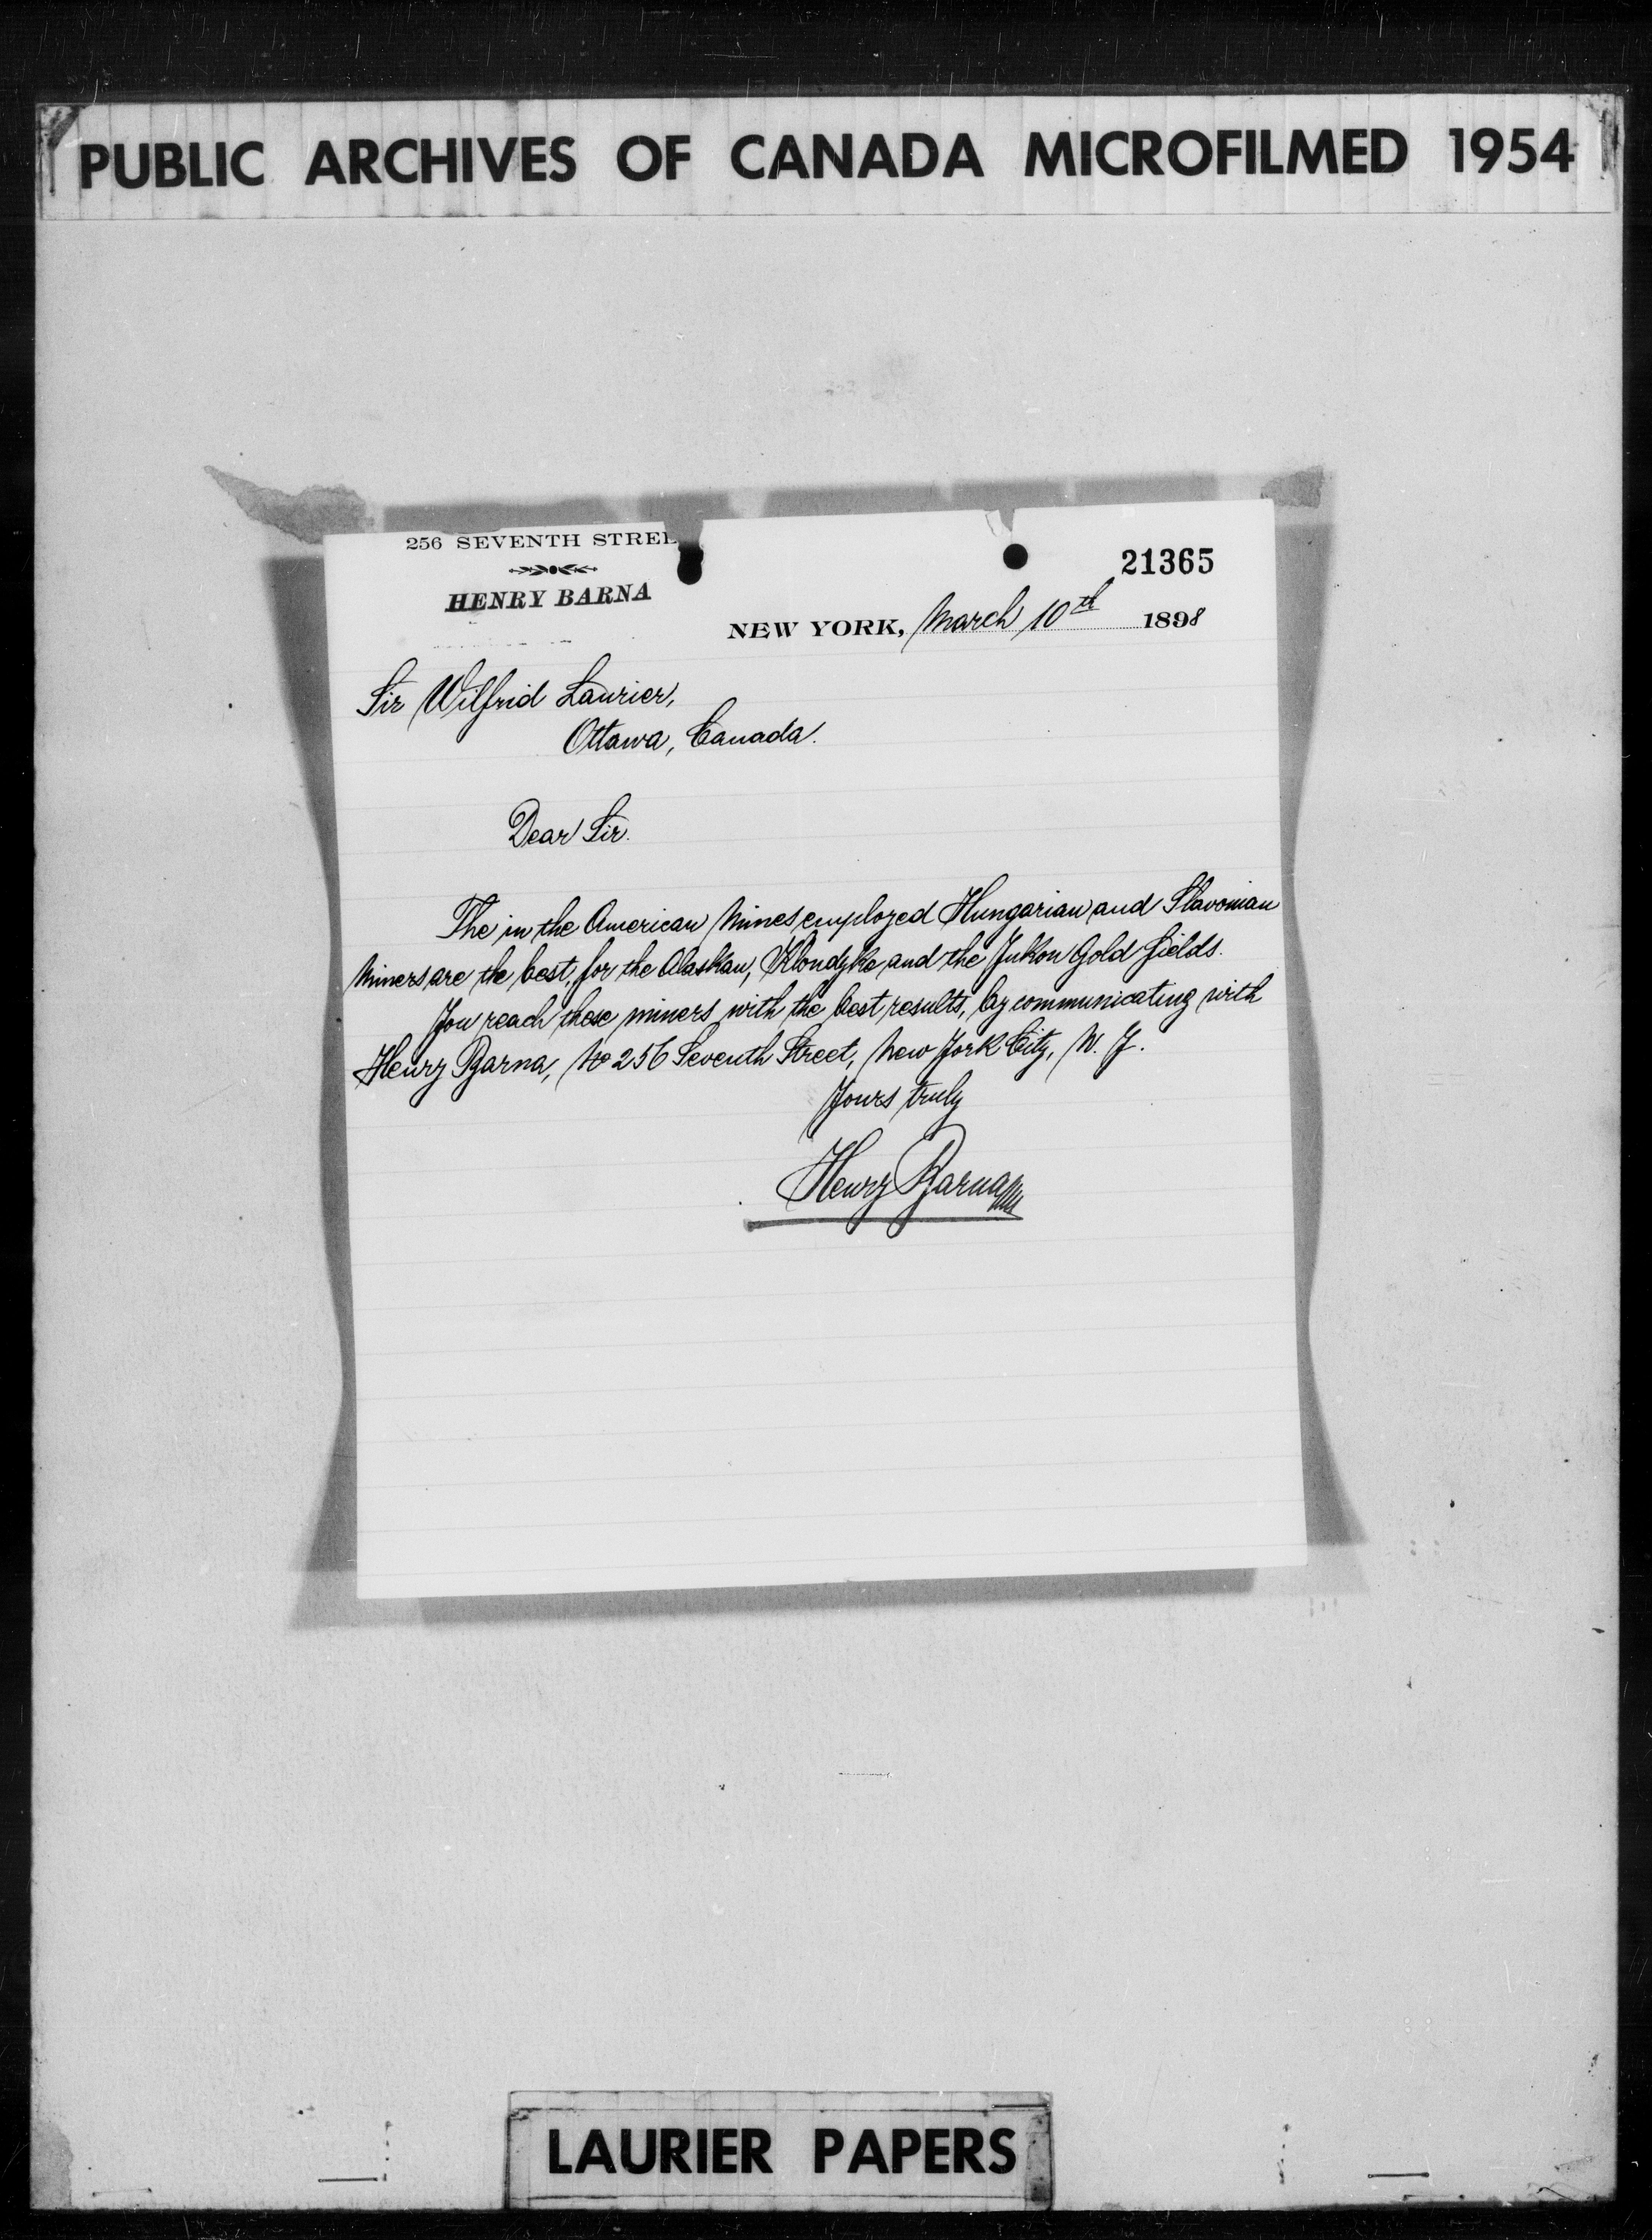 PUBLIC ARCHIVES OF CANADA MICROFILMED 1954
256 SEVENTH STREE
HENRY BARNA
21365
NEW YORK, March 10th 1898
Sir Wilfrid Laurier,
Ottawa, Canada.
Dear Sir.
The in the American Mines employed Hungarian and Slavonian
Miners are the best, for the Alaskan, Klondyke and the Yukon Gold fields.
You reach these miners with the best results, by communicating with
Henry Barna, No 256 Seventh Street, New York City, N. Y.
Yours truly
Henry Barna
LAURIER PAPERS